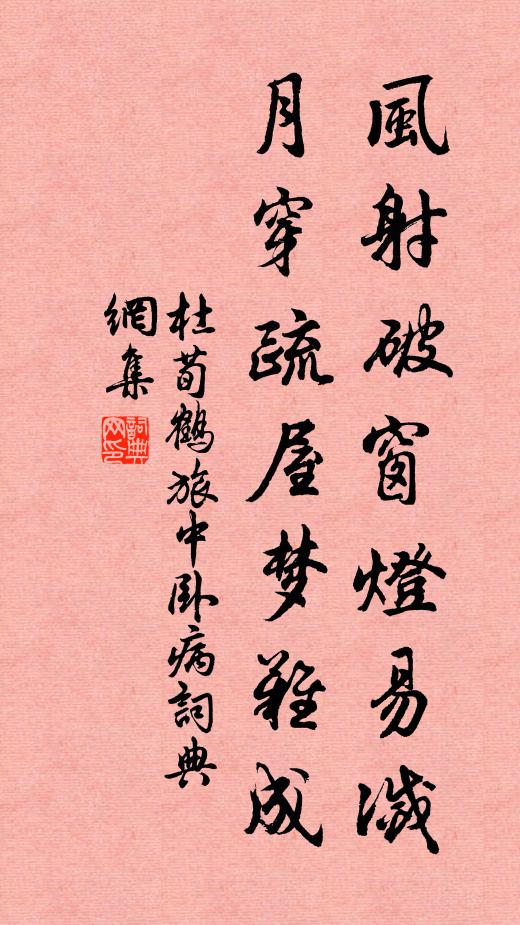 風射破窗燈易滅
月穿疏屋梦難成
杜荀鶴旅中卧病詞典
網集
詞典網印